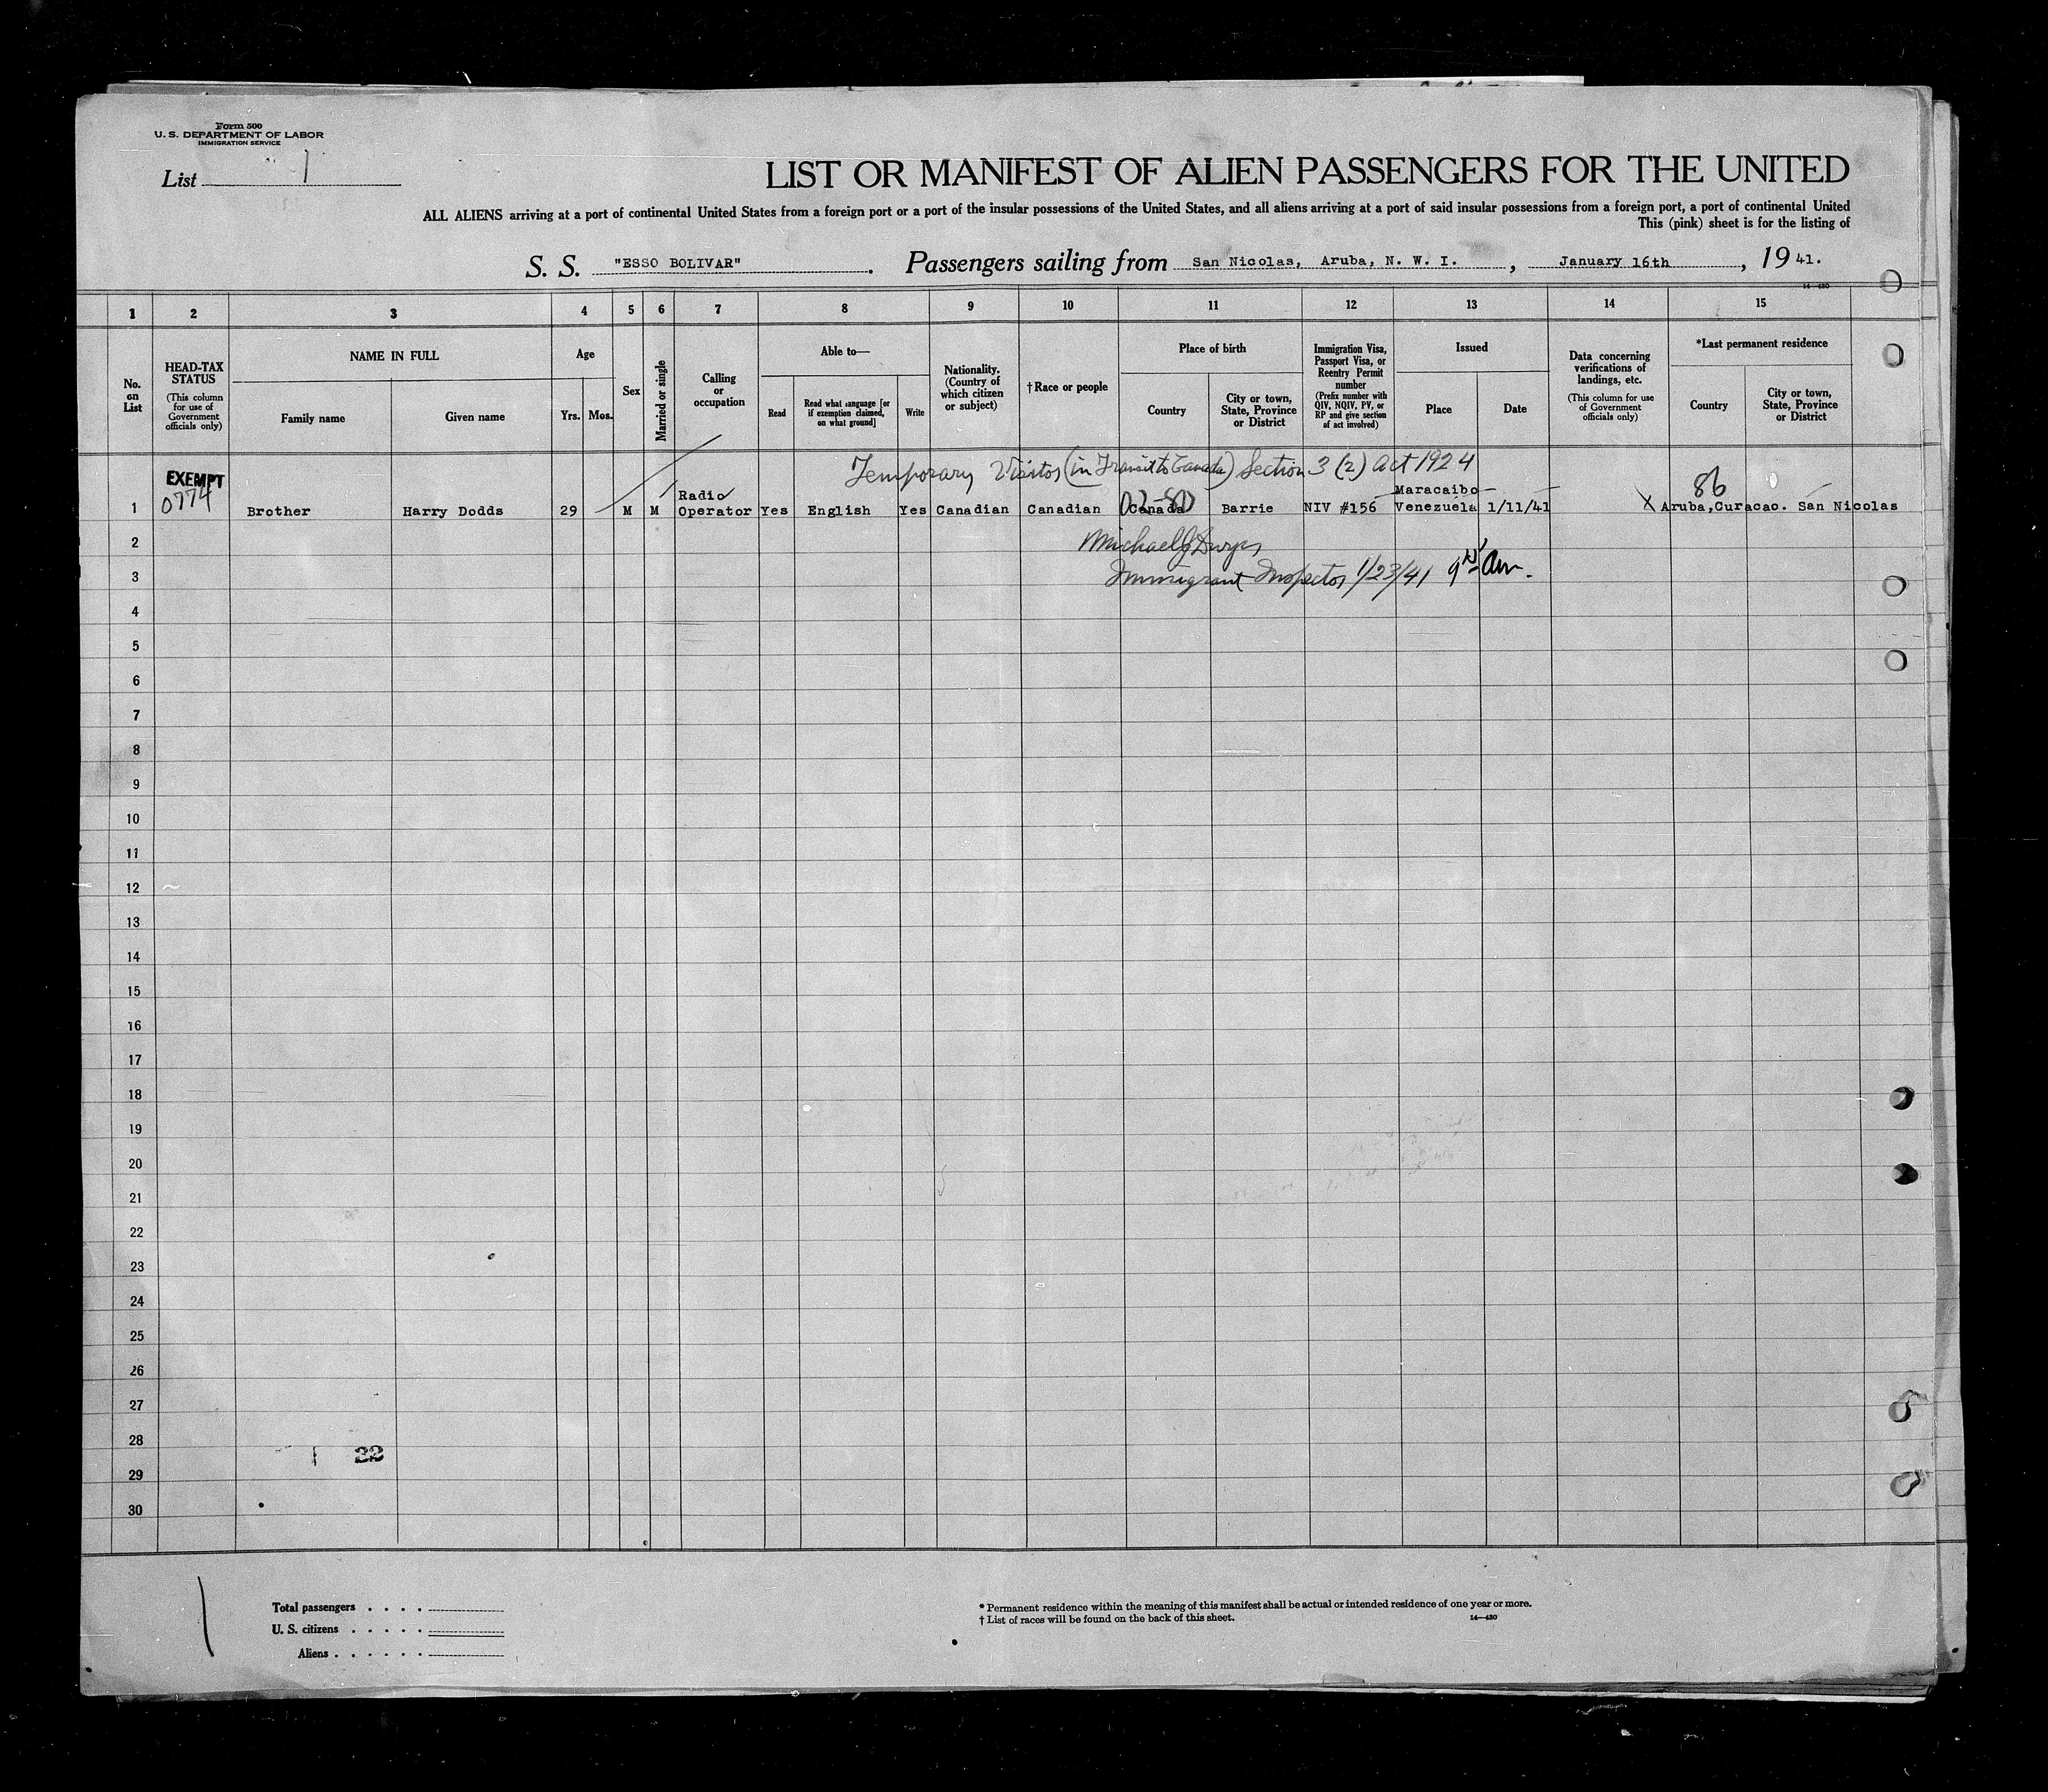 Form 500
U. S. DEPARTMENT OF LABOR
IMMIGRATION SERVICE
List 1
LIST OR MANIFEST OF ALIEN PASSENGERS FOR THE UNITED
ALL ALIENS arriving at a port of continental United States from a foreign port or a port of the insular possessions of the United States, and all aliens arriving at a port of said insular possessions from a foreign port, a port of continental United
This (pink) sheet is for the listing of
S. S. "ESSO BOLIVAR" . Passengers sailing from San Nicolas, Aruba, N. W. I. , January 16th , 19 41.
14—430
1 2 3 4 5 6 7 8 9 10 11 12 13 14 15
No. on List
HEAD-TAX STATUS
(This column for use of Government officials only)
NAME IN FULL
Family name
Given name
Age
Yrs.
Mos.
Sex
Married or single
Calling or occupation
Able to—
Read
Read what language [or if exemption claimed, on what ground]
Write
Nationality. (Country of which citizen or subject)
†Race or people
Place of birth
Country
City or town, State, Province or District
Immigration Visa, Passport Visa, or Reentry Permit number
(Prefix number with QIV, NQIV, PV, or RP and give section of act involved)
Issued
Place
Date
Data concerning verifications of landings, etc.
(This column for use of Government officials only)
*Last permanent residence
Country
City or town, State, Province or District
Temporary Visitor (in Transit to Canada) Section 3 (2) Act 1924
EXEMPT
0774
86
1 Brother Harry Dodds 29 M M Radio Operator Yes English Yes Canadian Canadian Canada Barrie NIV #156 Maracaibo Venezuela 1/11/41 X Aruba,Curacao. San Nicolas
02-80
2 Michael J Dwyer
3 Immigrant Inspector 1/23/41 9 Am.
4
5
6
7
8
9
10
11
12
13
14
15
16
17
18
19
20
21
22
23
24
25
26
27
28
22
29
30
Total passengers . . . .
U. S. citizens . . . . .
Aliens . . . . . .
* Permanent residence within the meaning of this manifest shall be actual or intended residence of one year or more.
† List of races will be found on the back of this sheet. 14—430